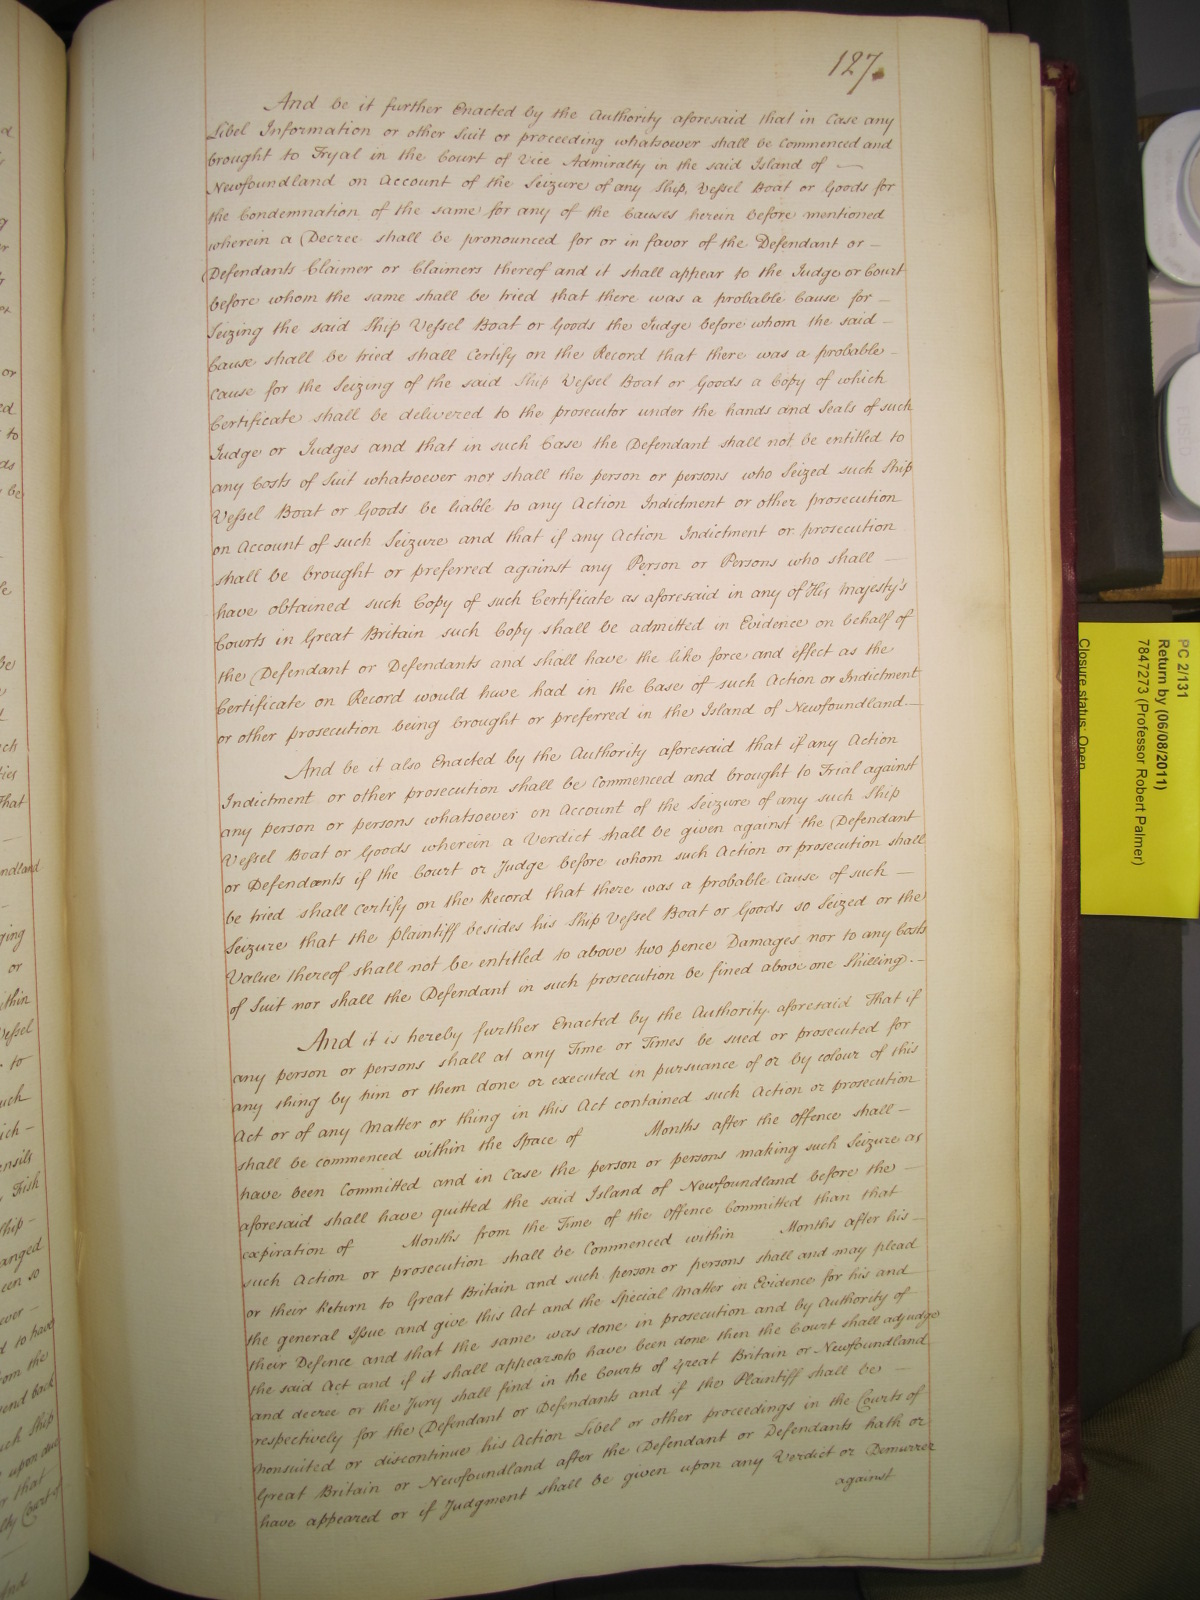 127.
And be it further Enacted by the Authority aforesaid that in Case any
Libel Information or other Suit or proceeding whatsoever shall be Commenced and
brought to Tryal in the Court of Vice Admiralty in the said Island of —
Newfoundland on Account of the Seizure of any Ship, Vessel Boat or Goods for
the Condemnation of the same for any of the Causes herein before mentioned
wherein a Decree shall be pronounced for or in favor of the Defendant or —
Defendants Claimer or Claimers thereof and it shall appear to the Judge or Court
before whom the same shall be tried that there was a probable Cause for —
Seizing the said Ship Vessel Boat or Goods the Judge before whom the said —
Cause shall be tried shall Certify on the Record that there was a probable —
Cause for the Seizing of the said Ship Vessel Boat or Goods a Copy of which
Certificate shall be delivered to the prosecutor under the hands and Seals of such
Judge or Judges and that in such Case the Defendant shall not be entitled to
any Costs of Suit whatsoever nor shall the person or persons who Seized such Ship
Vessel Boat or Goods be liable to any Action Indictment or other prosecution
on Account of such Seizure and that if any Action Indictment or prosecution
shall be brought or preferred against any Person or Persons who shall —
have obtained such Copy of such Certificate as aforesaid in any of His Majesty's
Courts in Great Britain such Copy shall be admitted in Evidence on behalf of
the Defendant or Defendants and shall have the like force and effect as the
Certificate on Record would have had in the Case of such Action or Indictment
or other prosecution being brought or preferred in the Island of Newfoundland.—
And be it also Enacted by the Authority aforesaid that if any Action
Indictment or other prosecution shall be Commenced and brought to Trial against
any person or persons whatsoever on Account of the Seizure of any such Ship
Vessel Boat or Goods wherein a Verdict shall be given against the Defendant
or Defendants if the Court or Judge before whom such Action or prosecution shall
be tried shall Certify on the Record that there was a probable Cause of such —
Seizure that the plaintiff besides his Ship Vessel Boat or Goods so Seized or the
Value thereof shall not be entitled to above two pence Damages nor to any Costs
of Suit nor shall the Defendant in such prosecution be fined above one Shilling.—
And it is hereby further Enacted by the Authority aforesaid That if
any person or persons shall at any Time or Times be sued or prosecuted for
any thing by him or them done or executed in pursuance of or by colour of this
Act or of any Matter or thing in this Act contained such Action or prosecution
shall be commenced within the Space of Months after the offence shall —
have been Committed and in Case the person or persons making such Seizure as
aforesaid shall have quitted the said Island of Newfoundland before the —
expiration of Months from the Time of the offence Committed than that
such Action or prosecution shall be Commenced within Months after his —
or their Return to Great Britain and such person or persons shall and may plead
the general Issue and give this Act and the Special Matter in Evidence for his and
their Defence and that the same was done in prosecution and by Authority of
the said Act and if it shall appear so to have been done then the Court shall adjudge
and decree or the Jury shall find in the Courts of Great Britain or Newfoundland
respectively for the Defendant or Defendants and if the Plaintiff shall be —
nonsuited or discontinue his Action Libel or other proceedings in the Courts of
Great Britain or Newfoundland after the Defendant or Defendants hath or
have appeared or if Judgment shall be given upon any Verdict or Demurrer
against
PC 2/131
Return by (06/08/2011)
7847273 (Professor Robert Palmer)
Closure status: Open